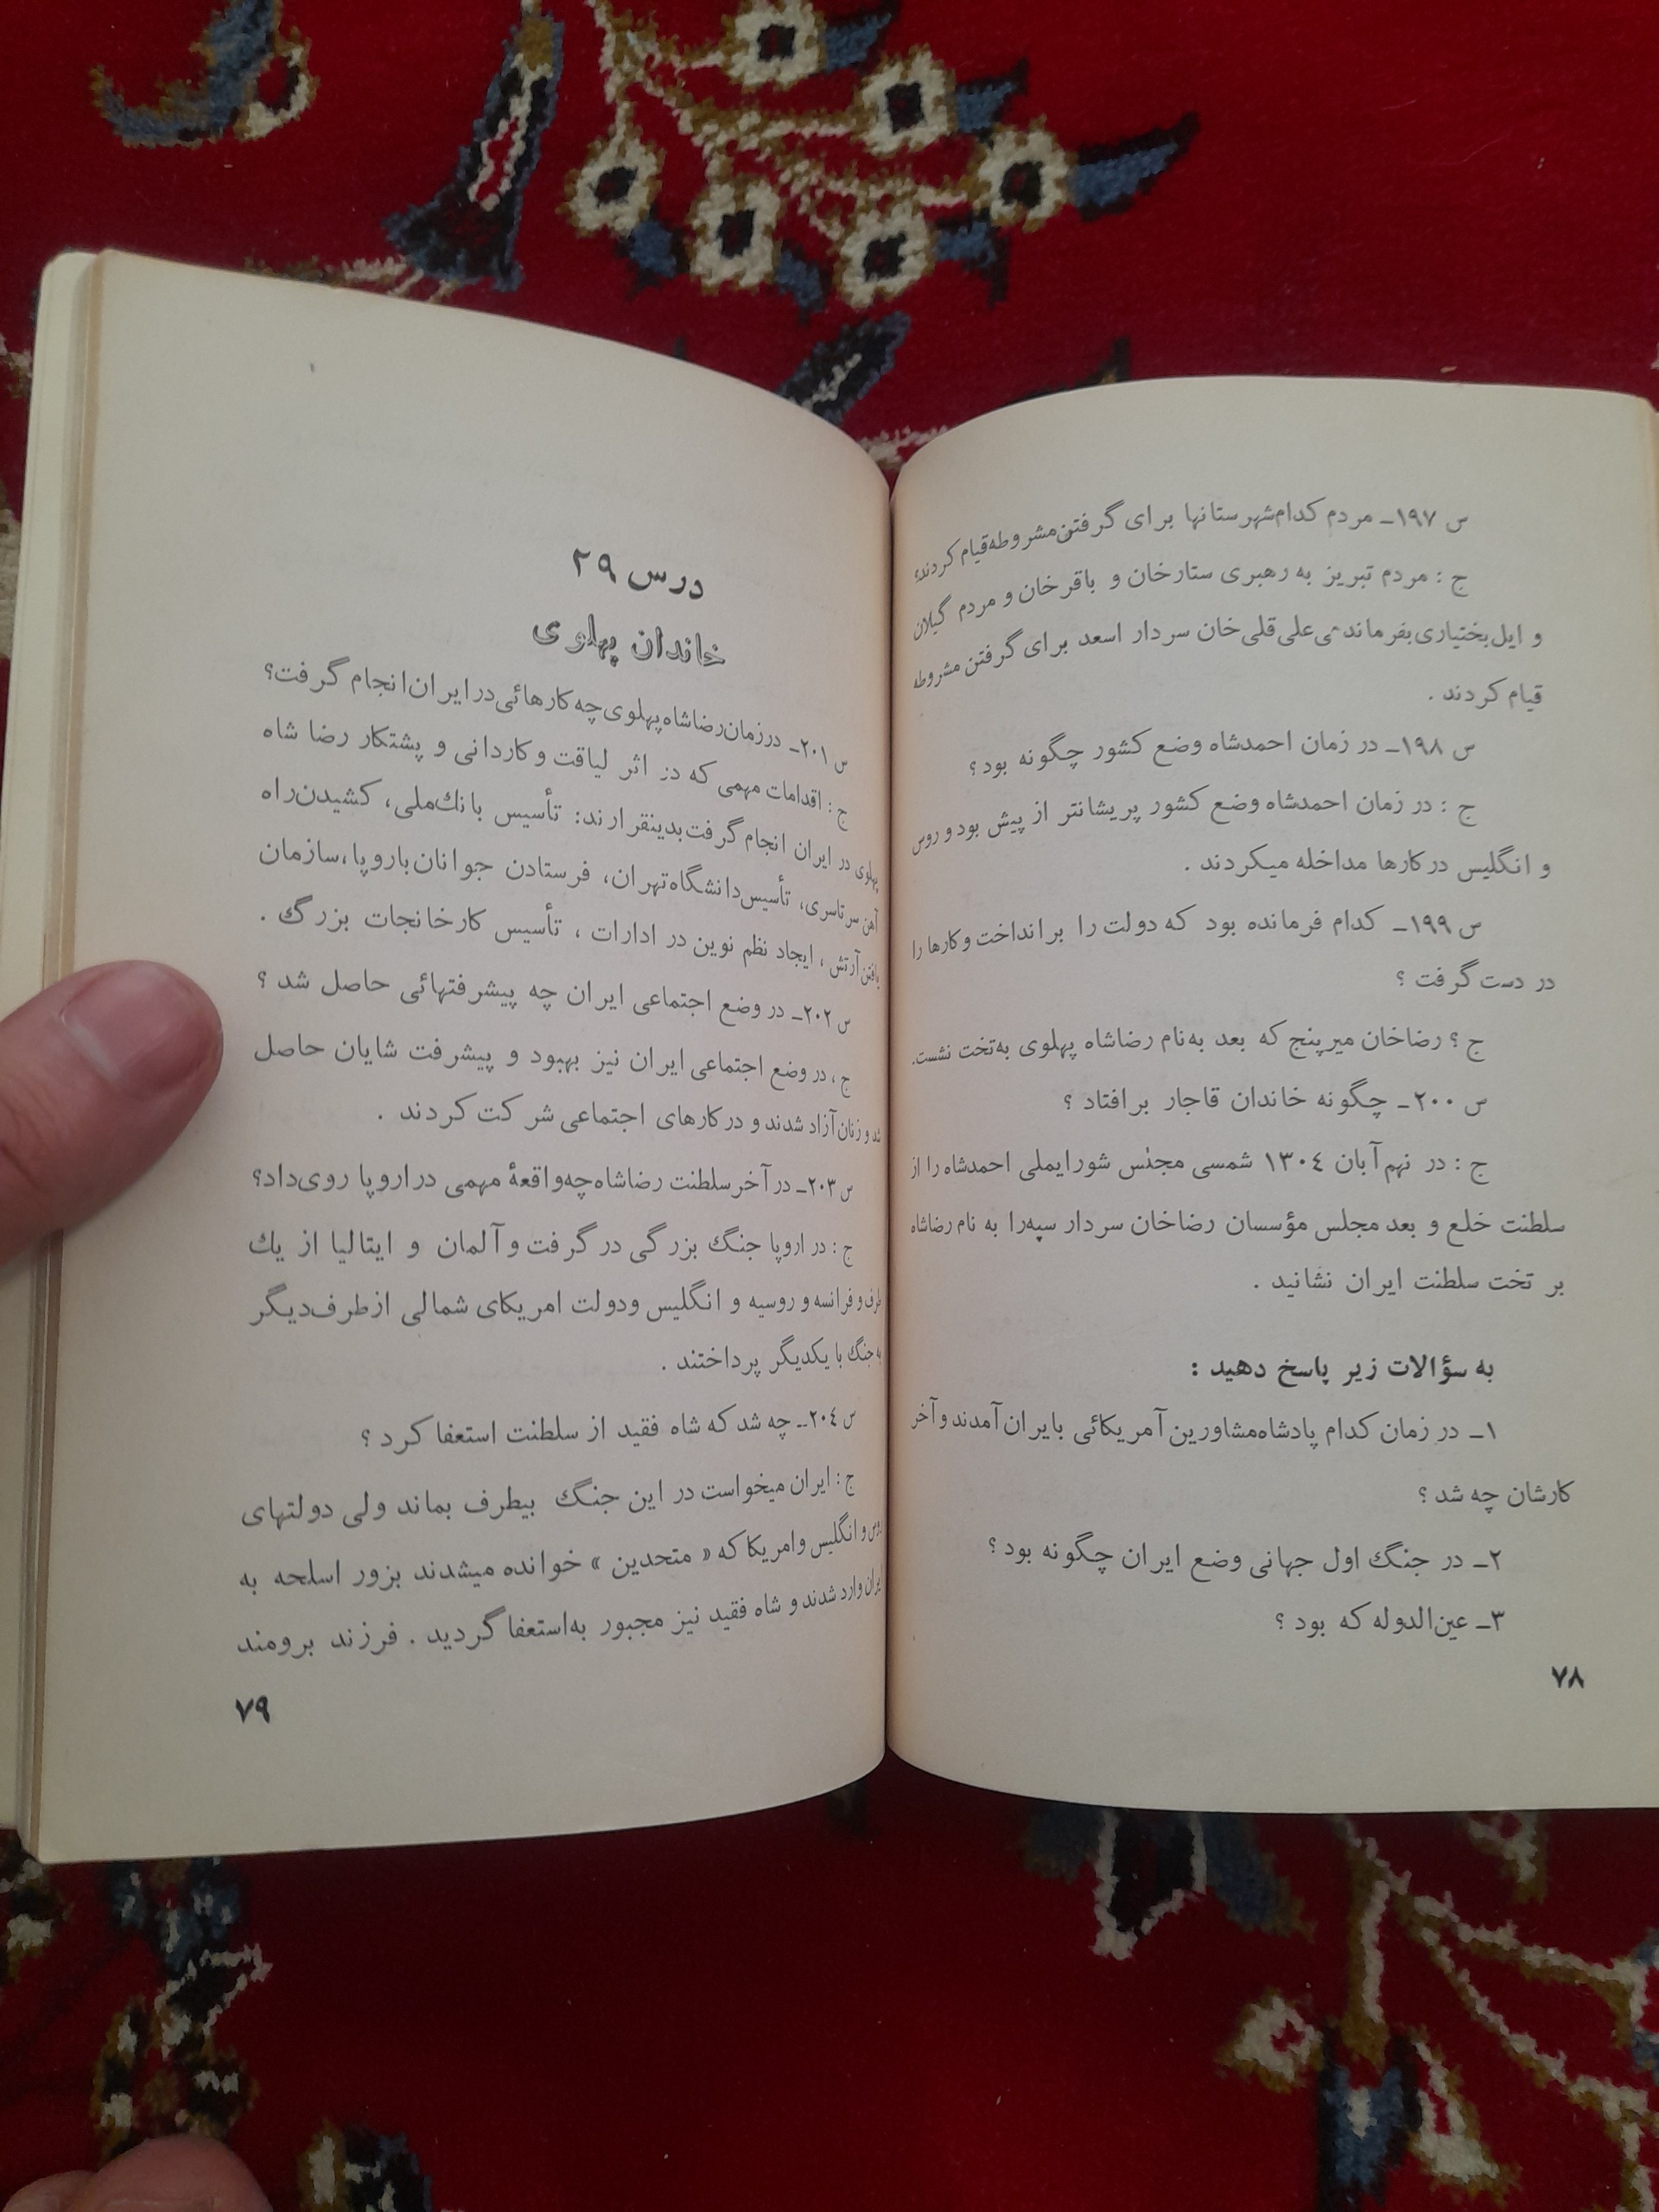 س ۱۹۷ـ مردم کدام شهرستانها برای گرفتن مشروطه قیام کردند؟
ج : مردم تبریز به رهبری ستارخان و باقرخان و مردم گیلان
و ایل بختیاری بفرماندهی علی قلی خان سردار اسعد برای گرفتن مشروطه
قیام کردند .
س ۱۹۸ـ در زمان احمدشاه وضع کشور چگونه بود؟
ج : در زمان احمدشاه وضع کشور پریشانتر از پیش بود و روس
و انگلیس در کارها مداخله میکردند .
س ۱۹۹ـ کدام فرمانده بود که دولت را برانداخت و کارها را
در دست گرفت ؟
ج ؟ رضاخان میرپنج که بعد به نام رضاشاه پهلوی به تخت نشست.
س ۲۰۰ـ چگونه خاندان قاجار برافتاد ؟
ج : در نهم آبان ۱۳۰٤ شمسی مجلس شورایملی احمدشاه را از
سلطنت خلع و بعد مجلس مؤسسان رضاخان سردار سپه را به نام رضاشاه
بر تخت سلطنت ایران نشانید .
به سؤالات زیر پاسخ دهید :
۱ـ در زمان کدام پادشاه مشاورین آمریکائی بایران آمدند و آخر
کارشان چه شد ؟
۲ـ در جنگ اول جهانی وضع ایران چگونه بود ؟
۳ـ عین‌الدوله که بود ؟
۷۸
درس ۲۹
خاندان پهلوی
س ۲۰۱ـ در زمان رضاشاه پهلوی چه کارهائی در ایران انجام گرفت؟
ج : اقدامات مهمی که در اثر لیاقت و کاردانی و پشتکار رضا شاه
پهلوی در ایران انجام گرفت بدینقرارند: تأسیس بانك ملی، کشیدن راه
آهن سرتاسری، تأسیس دانشگاه تهران، فرستادن جوانان باروپا، سازمان
یافتن آرتش ، ایجاد نظم نوین در ادارات ، تأسیس کارخانجات بزرگ .
س ۲۰۲ـ در وضع اجتماعی ایران چه پیشرفتهائی حاصل شد ؟
ج ، در وضع اجتماعی ایران نیز بهبود و پیشرفت شایان حاصل
شد و زنان آزاد شدند و در کارهای اجتماعی شرکت کردند .
س ۲۰۳ـ در آخر سلطنت رضاشاه چه واقعهٔ مهمی در اروپا روی داد؟
ج : در اروپا جنگ بزرگی در گرفت و آلمان و ایتالیا از یك
طرف و فرانسه و روسیه و انگلیس و دولت امریکای شمالی از طرف دیگر
به جنگ با یکدیگر پرداختند .
س ۲۰٤ـ چه شد که شاه فقید از سلطنت استعفا کرد ؟
ج : ایران میخواست در این جنگ بیطرف بماند ولی دولتهای
روس و انگلیس و امریکا که « متحدین » خوانده میشدند بزور اسلحه به
ایران وارد شدند و شاه فقید نیز مجبور به استعفا گردید . فرزند برومند
۷۹